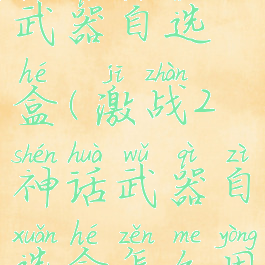 武器自选
hé jī zhàn
盒(激战2
shén huà wǔ qì zì
神话武器自
xuǎn hé zěn me yòng
选盒怎么用